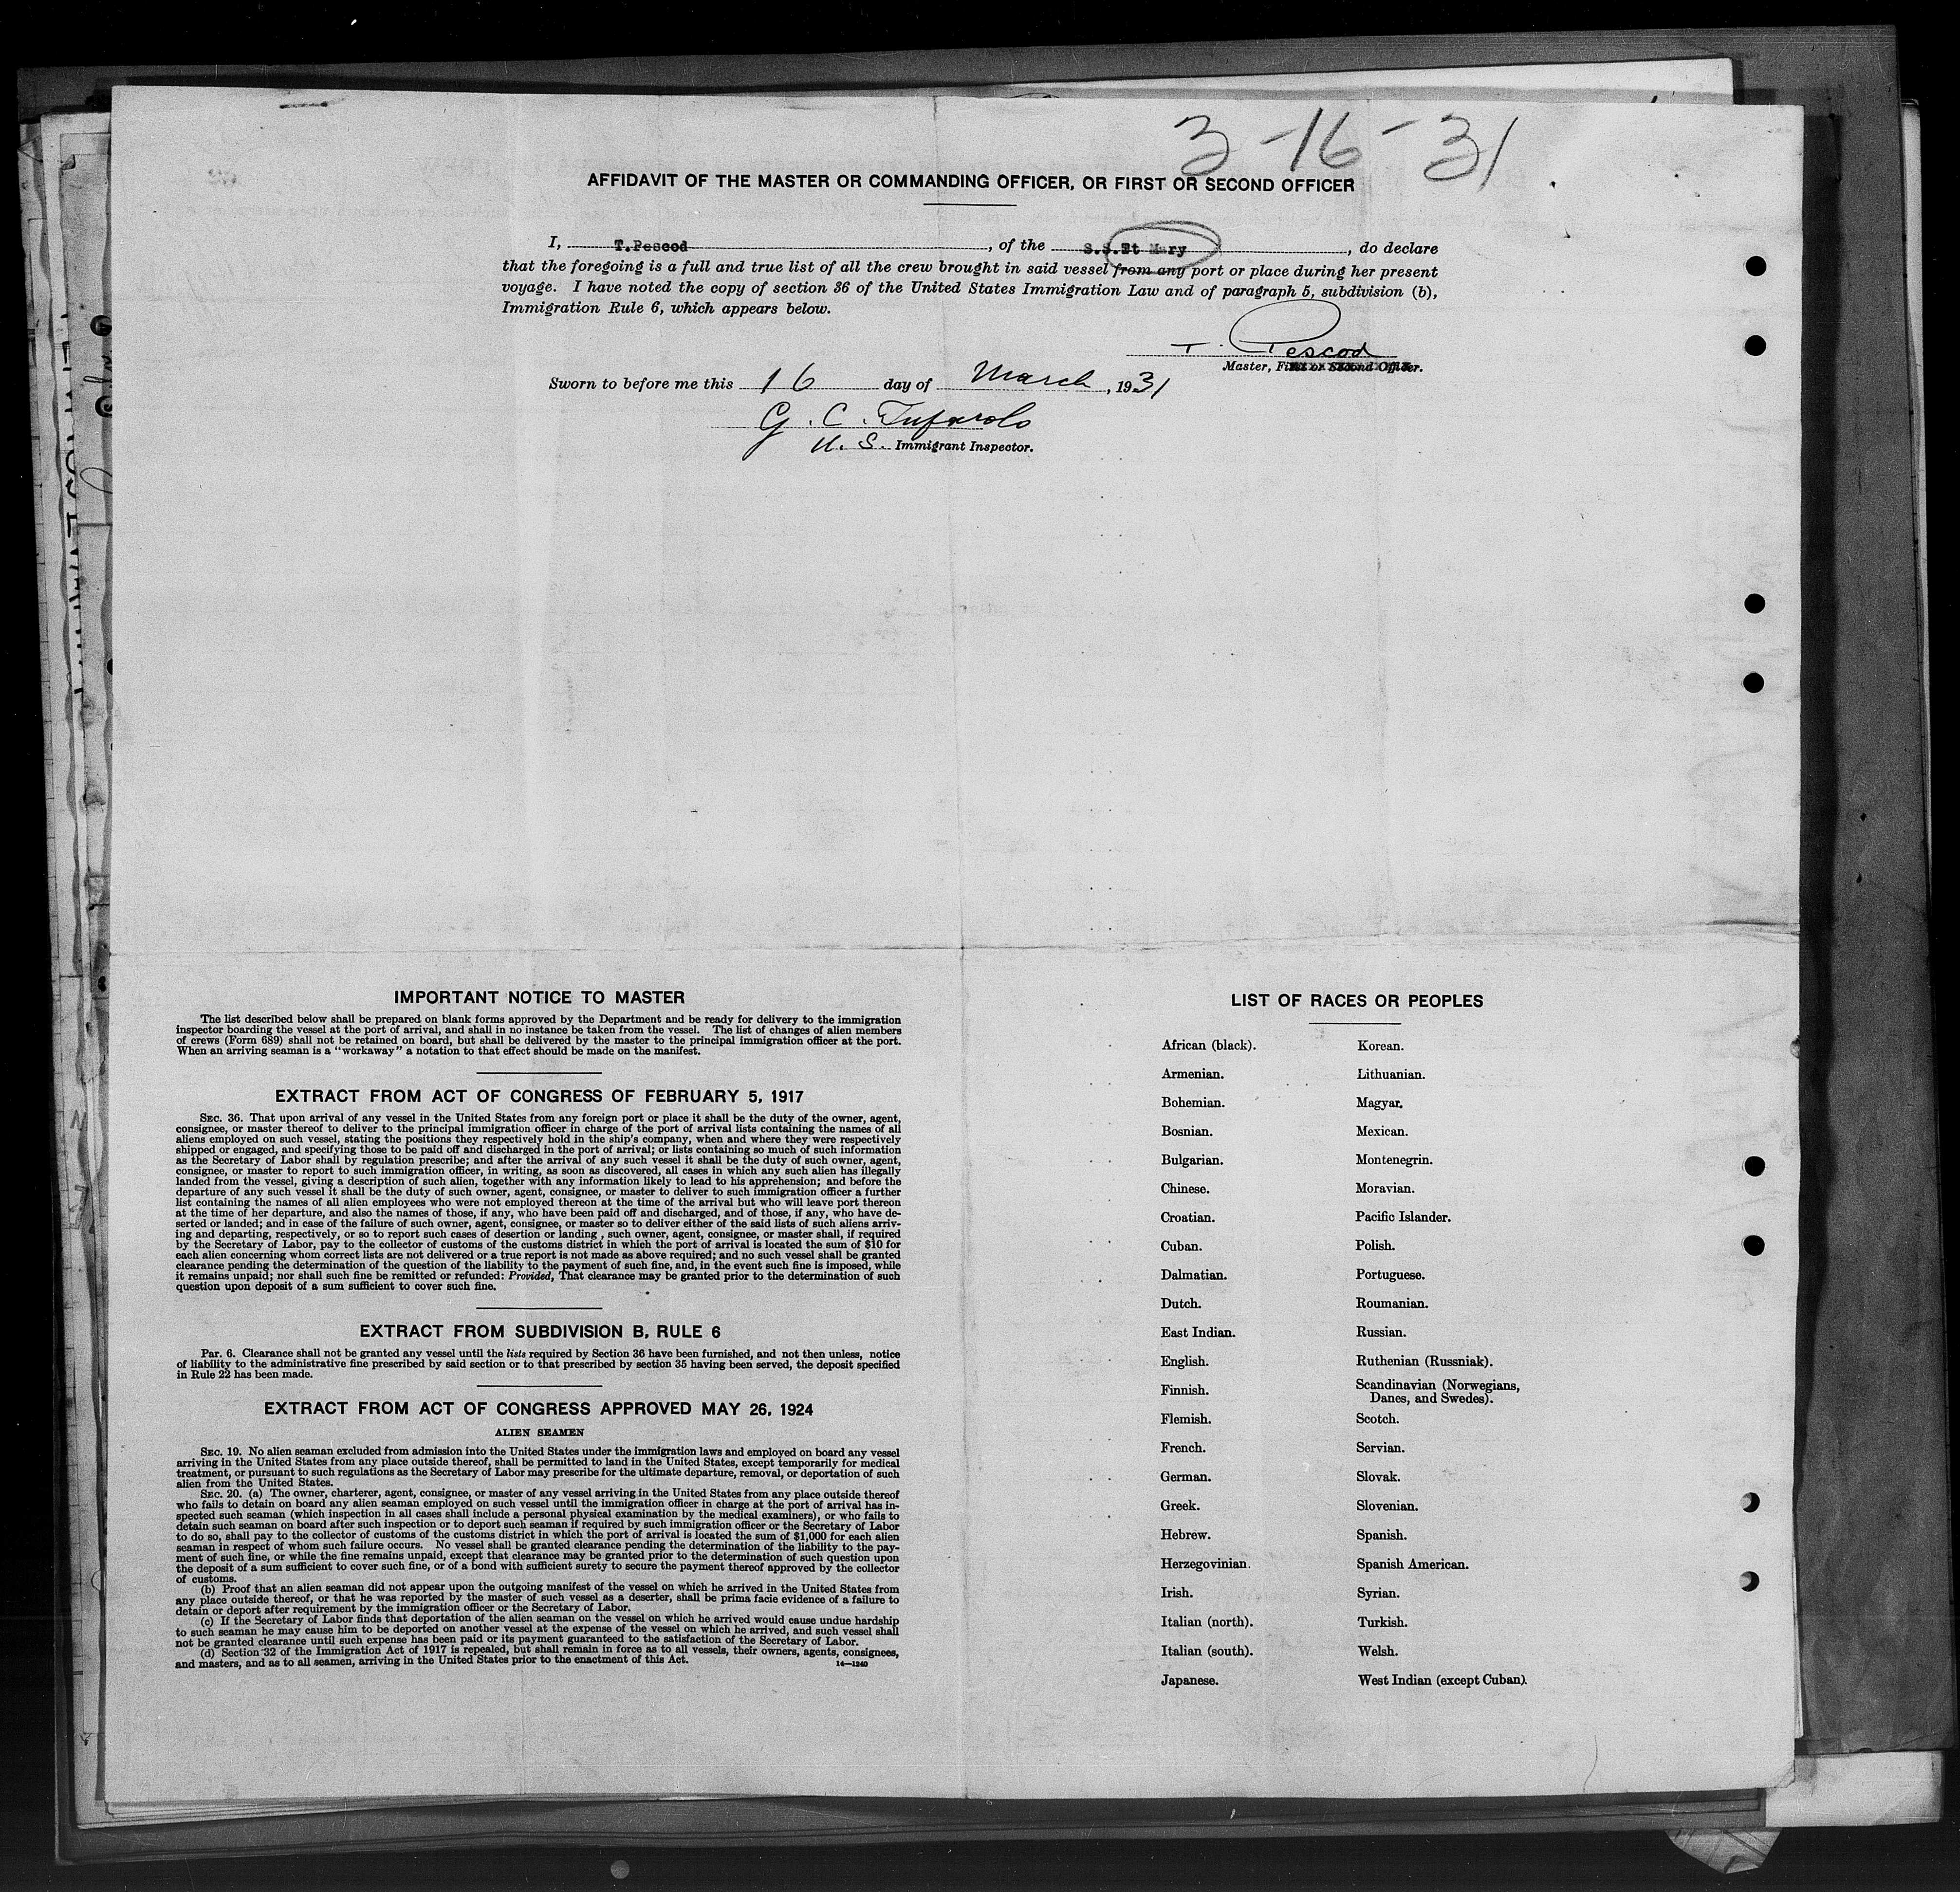 3-16-31
AFFIDAVIT OF THE MASTER OR COMMANDING OFFICER, OR FIRST OR SECOND OFFICER
I, T.Pescod, of the S.S.St Mary, do declare
that the foregoing is a full and true list of all the crew brought in said vessel from any port or place during her present
voyage. I have noted the copy of section 36 of the United States Immigration Law and of paragraph 5, subdivision (b),
Immigration Rule 6, which appears below.
T. Pescod
Master, First or Second Officer.
Sworn to before me this 16 day of March, 1931
G. C. Tufarolo
U. S. Immigrant Inspector.
IMPORTANT NOTICE TO MASTER
The list described below shall be prepared on blank forms approved by the Department and be ready for delivery to the immigration
inspector boarding the vessel at the port of arrival, and shall in no instance be taken from the vessel. The list of changes of alien members
of crews (Form 689) shall not be retained on board, but shall be delivered by the master to the principal immigration officer at the port.
When an arriving seaman is a "workaway" a notation to that effect should be made on the manifest.
EXTRACT FROM ACT OF CONGRESS OF FEBRUARY 5, 1917
SEC. 36. That upon arrival of any vessel in the United States from any foreign port or place it shall be the duty of the owner, agent,
consignee, or master thereof to deliver to the principal immigration officer in charge of the port of arrival lists containing the names of all
aliens employed on such vessel, stating the positions they respectively hold in the ship's company, when and where they were respectively
shipped or engaged, and specifying those to be paid off and discharged in the port of arrival; or lists containing so much of such information
as the Secretary of Labor shall by regulation prescribe; and after the arrival of any such vessel it shall be the duty of such owner, agent,
consignee, or master to report to such immigration officer, in writing, as soon as discovered, all cases in which any such alien has illegally
landed from the vessel, giving a description of such alien, together with any information likely to lead to his apprehension; and before the
departure of any such vessel it shall be the duty of such owner, agent, consignee, or master to deliver to such immigration officer a further
list containing the names of all alien employees who were not employed thereon at the time of the arrival but who will leave port thereon
at the time of her departure, and also the names of those, if any, who have been paid off and discharged, and of those, if any, who have de-
serted or landed; and in case of the failure of such owner, agent, consignee, or master so to deliver either of the said lists of such aliens arriv-
ing and departing, respectively, or so to report such cases of desertion or landing, such owner, agent, consignee, or master shall, if required
by the Secretary of Labor, pay to the collector of customs of the customs district in which the port of arrival is located the sum of $10 for
each alien concerning whom correct lists are not delivered or a true report is not made as above required; and no such vessel shall be granted
clearance pending the determination of the question of the liability to the payment of such fine, and, in the event such fine is imposed, while
it remains unpaid; nor shall such fine be remitted or refunded: Provided, That clearance may be granted prior to the determination of such
question upon deposit of a sum sufficient to cover such fine.
EXTRACT FROM SUBDIVISION B, RULE 6
PAR. 6. Clearance shall not be granted any vessel until the lists required by Section 36 have been furnished, and not then unless, notice
of liability to the administrative fine prescribed by said section or to that prescribed by section 35 having been served, the deposit specified
in Rule 22 has been made.
EXTRACT FROM ACT OF CONGRESS APPROVED MAY 26, 1924
ALIEN SEAMEN
SEC. 19. No alien seaman excluded from admission into the United States under the immigration laws and employed on board any vessel
arriving in the United States from any place outside thereof, shall be permitted to land in the United States, except temporarily for medical
treatment, or pursuant to such regulations as the Secretary of Labor may prescribe for the ultimate departure, removal, or deportation of such
alien from the United States.
SEC. 20. (a) The owner, charterer, agent, consignee, or master of any vessel arriving in the United States from any place outside thereof
who fails to detain on board any alien seaman employed on such vessel until the immigration officer in charge at the port of arrival has in-
spected such seaman (which inspection in all cases shall include a personal physical examination by the medical examiners), or who fails to
detain such seaman on board after such inspection or to deport such seaman if required by such immigration officer or the Secretary of Labor
to do so, shall pay to the collector of customs of the customs district in which the port of arrival is located the sum of $1,000 for each alien
seaman in respect of whom such failure occurs. No vessel shall be granted clearance pending the determination of the liability to the pay-
ment of such fine, or while the fine remains unpaid, except that clearance may be granted prior to the determination of such question upon
the deposit of a sum sufficient to cover such fine, or of a bond with sufficient surety to secure the payment thereof approved by the collector
of customs.
(b) Proof that an alien seaman did not appear upon the outgoing manifest of the vessel on which he arrived in the United States from
any place outside thereof, or that he was reported by the master of such vessel as a deserter, shall be prima facie evidence of a failure to
detain or deport after requirement by the immigration officer or the Secretary of Labor.
(c) If the Secretary of Labor finds that deportation of the alien seaman on the vessel on which he arrived would cause undue hardship
to such seaman he may cause him to be deported on another vessel at the expense of the vessel on which he arrived, and such vessel shall
not be granted clearance until such expense has been paid or its payment guaranteed to the satisfaction of the Secretary of Labor.
(d) Section 32 of the Immigration Act of 1917 is repealed, but shall remain in force as to all vessels, their owners, agents, consignees,
and masters, and as to all seamen, arriving in the United States prior to the enactment of this Act.
14—1240
LIST OF RACES OR PEOPLES
African (black).
Armenian.
Bohemian.
Bosnian.
Bulgarian.
Chinese.
Croatian.
Cuban.
Dalmatian.
Dutch.
East Indian.
English.
Finnish.
Flemish.
French.
German.
Greek.
Hebrew.
Herzegovinian.
Irish.
Italian (north).
Italian (south).
Japanese.
Korean.
Lithuanian.
Magyar.
Mexican.
Montenegrin.
Moravian.
Pacific Islander.
Polish.
Portuguese.
Roumanian.
Russian.
Ruthenian (Russniak).
Scandinavian (Norwegians,
Danes, and Swedes).
Scotch.
Servian.
Slovak.
Slovenian.
Spanish.
Spanish American.
Syrian.
Turkish.
Welsh.
West Indian (except Cuban).